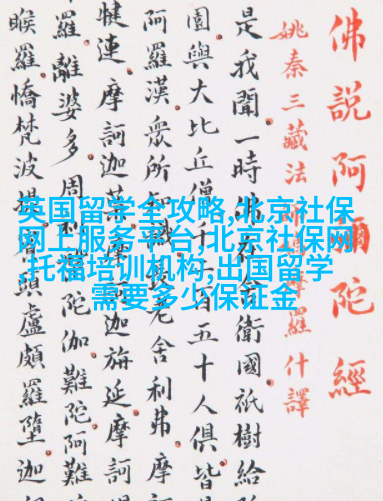 佛說阿彌陀經
姚秦三藏法摩羅什譯
是我聞一時佛在舍衛國祇樹給
園與大比丘僧千二百五十人俱皆
阿羅漢眾所知識長老舍利弗摩
犍連摩訶迦葉摩訶迦旃延摩訶
羅離婆多周利槃陀伽難陀阿難
睺羅憍梵波提賓頭盧頗羅墮迦
英国留学全攻略,北京社保
网上服务平台;北京社保网
托福培训机构,出国留学
需要多少保证金